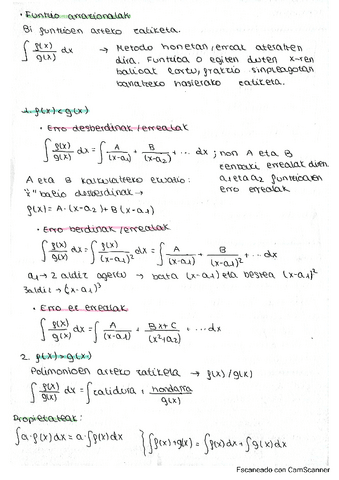 • Funtzio arrazionalak
Bi funtzioen arteko zatiketa.
∫ f(x)/g(x) dx → Metodo honetan, erroak ateratzen
dira. Funtzioa 0 egiten duten x-ren
balioak lortu, frakzio sinpleagotan
banatzeko hasierako zatiketa.
1. f(x) < g(x)
• Erro desberdinak/errealak
∫ f(x)/g(x) dx = ∫ A/(x-a₁) + B/(x-a₂) + ... dx ; non A eta B
zenbaki errealak diren
a₁ eta a₂ funtzioaren
erro errealak
A eta B kalkulatzeko
balio desberdinak →
f(x) = A·(x-a₂) + B(x-a₁)
• Erro berdinak/errealak
∫ f(x)/g(x) dx = ∫ f(x)/(x-a₁)² = ∫ A/(x-a₁) + B/(x-a₁)² + ... dx
a₁ → 2 aldiz agertu → bata (x-a₁) eta bestea (x-a₁)²
3 aldiz → (x-a₁)³
• Erro ez errealak
∫ f(x)/g(x) dx = ∫ A/(x-a₁) + Bx+C/(x²+a₂) + ... dx
2. f(x) > g(x)
Polinomioen arteko zatiketa → f(x)/g(x)
∫ f(x)/g(x) dx = ∫ zatidura + hondarra/g(x)
Propietateak:
∫ a·f(x) dx = a·∫ f(x) dx } ∫ f(x)+g(x) = ∫ f(x) dx + ∫ g(x) dx
Escaneado con CamScanner